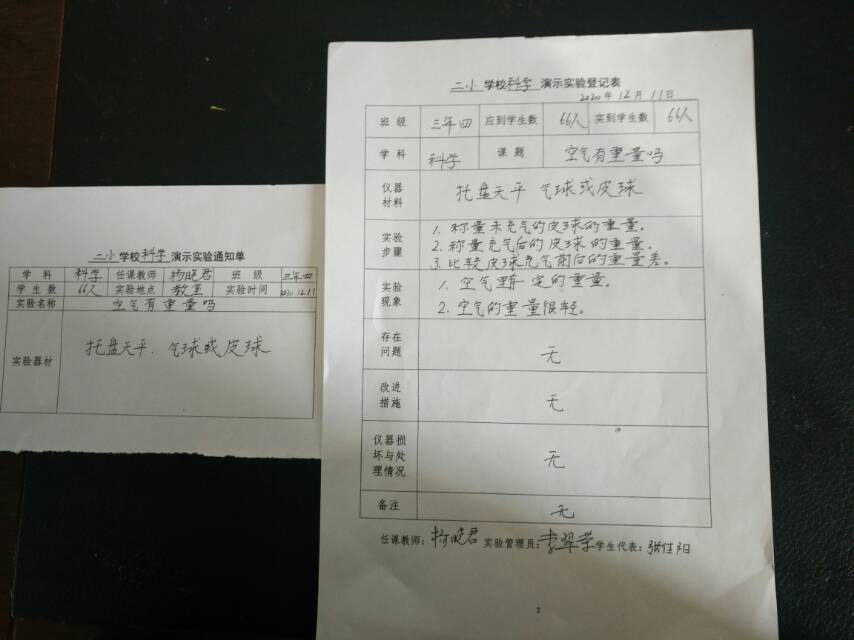 二小 学校科学 演示实验通知单
学 科 科学 任课教师 杨晓君 班 级 三年四
学 生 数 66人 实验地点 教室 实验时间 2020.12.11
实验名称 空气有重量吗
实验器材 托盘天平. 气球或皮球
二小 学校科学 演示实验登记表
2020年12月11日
班 级 三年四 应到学生数 66人 实到学生数 66人
学 科 科学 课 题 空气有重量吗
仪器材料 托盘天平 气球或皮球
实验步骤 1. 称量未充气的皮球的重量。
2. 称量充气后的皮球的重量。
3. 比较皮球充气前后的重量差。
实验现象 1. 空气有一定的重量。
2. 空气的重量很轻。
存在问题 无
改进措施 无
仪器损坏与处理情况 无
备注 无
任课教师：杨晓君 实验管理员：李翠荣 学生代表：张佳阳
1